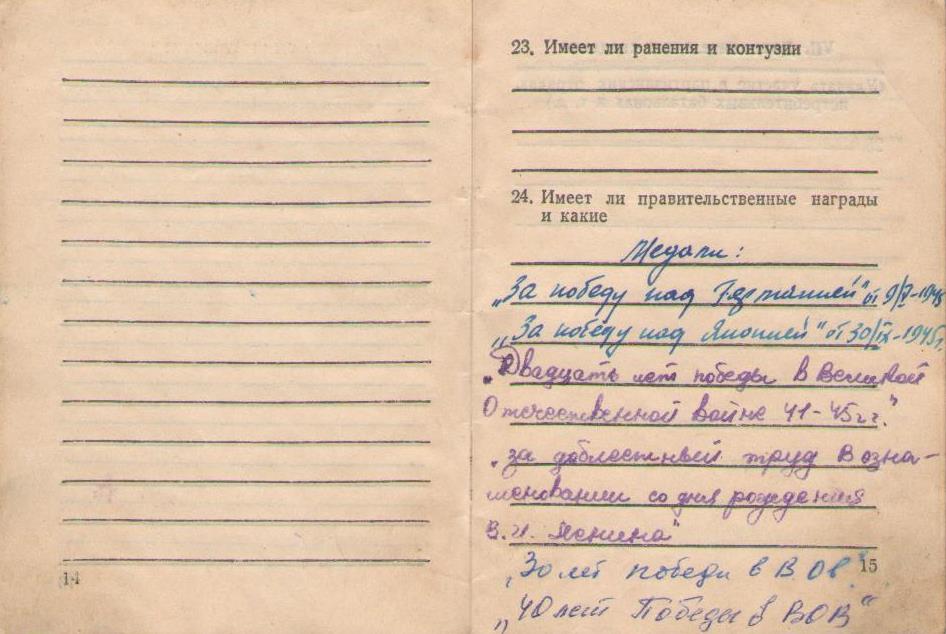 23. Имеет ли ранения и контузии
24. Имеет ли правительственные награды
и какие
Медали:
„За победу над Германией" от 9/V-1945
„За победу над Японией" от 30/IX-1945г.
„Двадцать лет победы в Великой
Отечественной войне 41-45 г.г."
„за доблестный труд в озна-
меновании со дня рождения
В.И. Ленина"
„30 лет победи в В.О в."
„40 лет Победы в ВОВ"
14
15